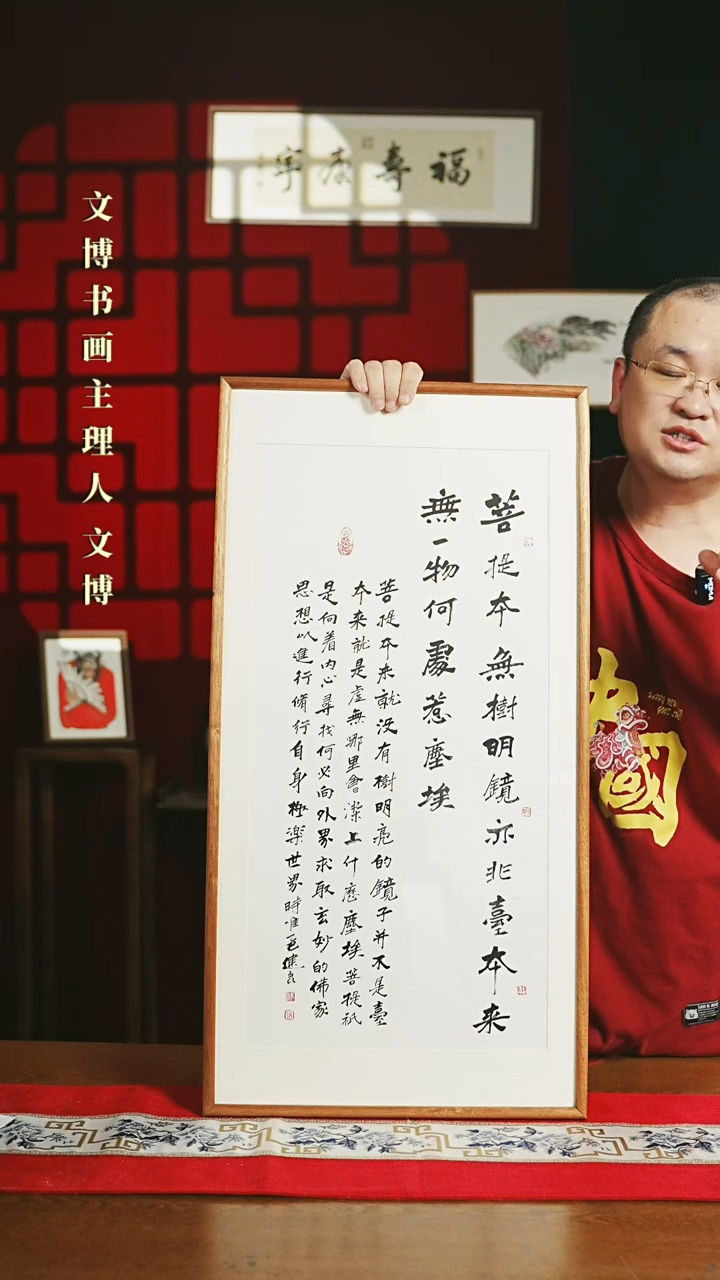 福壽康寧
文博书画主理人 文博
菩提本無樹明鏡亦非臺本来
無一物何處惹塵埃
菩提本来就没有樹明亮的鏡子并不是臺
本来就是虚無哪里會染上什麽塵埃菩提祇
是向着内心尋找何必向外界求取玄妙的佛家
思想以進行脩行自身極楽世界時唯
中國